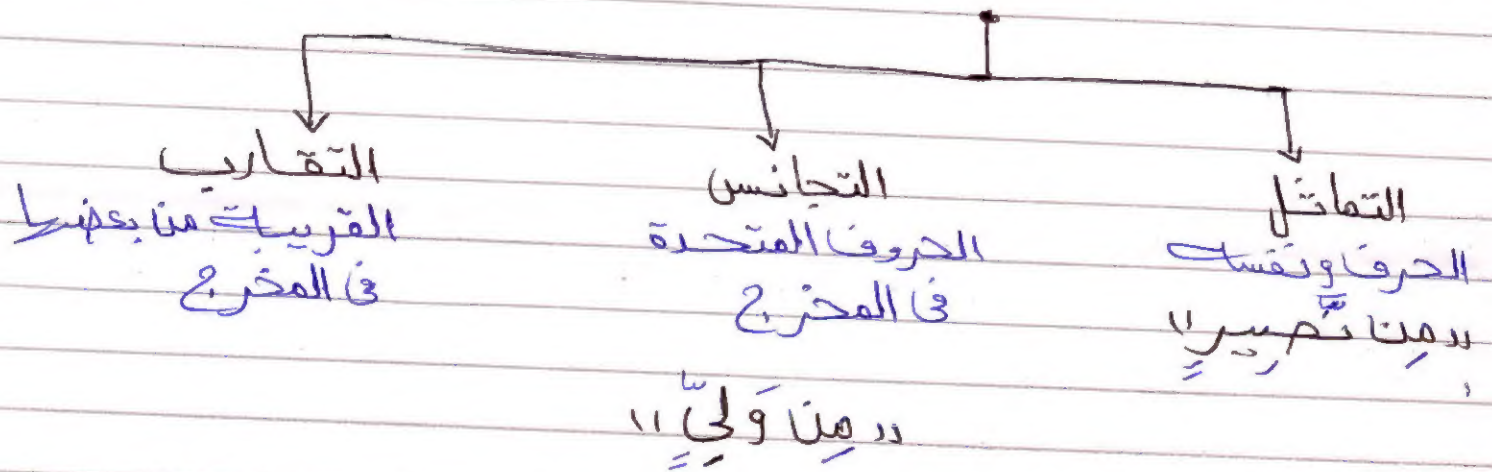 التماثل
الحرف ونفسه
"مِن نَّصِيرٍ"
التجانس
الحروف المتحدة
فى المخرج
التقارب
القريبة من بعضها
فى المخرج
"مِن وَلِيٍّ"